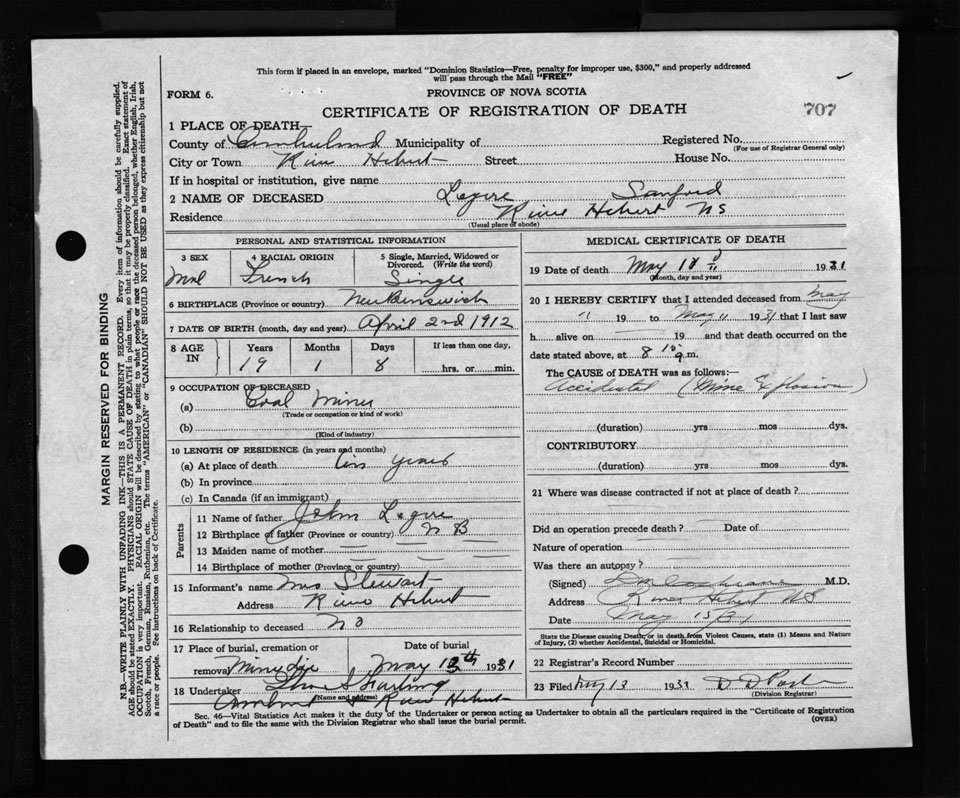 This form if placed in an envelope, marked "Dominion Statistics—Free, penalty for improper use, $300," and properly addressed
will pass through the Mail "FREE"
FORM 6.
PROVINCE OF NOVA SCOTIA
CERTIFICATE OF REGISTRATION OF DEATH
707
1 PLACE OF DEATH—
County of Cumberland Municipality of
Registered No.
(For use of Registrar General only)
City or Town River Hebert Street House No.
If in hospital or institution, give name
2 NAME OF DECEASED Legere Sanford
Residence River Hebert NS
(Usual place of abode)
PERSONAL AND STATISTICAL INFORMATION
3 SEX
4 RACIAL ORIGIN
5 Single, Married, Widowed or
Divorced. (Write the word)
Mal French Single
6 BIRTHPLACE (Province or country) New Brunswick
7 DATE OF BIRTH (month, day and year) April 2nd 1912
8 AGE IN
Years Months Days If less than one day,
19 1 8 hrs. or min.
9 OCCUPATION OF DECEASED
(a) Coal Miner
(Trade or occupation or kind of work)
(b)
(Kind of industry)
10 LENGTH OF RESIDENCE (in years and months)
(a) At place of death years
(b) In province
(c) In Canada (if an immigrant)
Parents
11 Name of father John Legere
12 Birthplace of father (Province or country) N B
13 Maiden name of mother
14 Birthplace of mother (Province or country)
15 Informant's name Mrs Stewart
Address River Hebert
16 Relationship to deceased No
17 Place of burial, cremation or Date of burial
removal Minudie May 13th 1931
18 Undertaker
(Name and address)
Amherst & River Hebert
MEDICAL CERTIFICATE OF DEATH
19 Date of death May 11 1931
(Month, day and year)
20 I HEREBY CERTIFY that I attended deceased from May
11 19 to May 11 1931 that I last saw
h alive on 19 and that death occurred on the
date stated above, at 8 10 m.
The CAUSE of DEATH was as follows:—
Accidental (Mine Explosion)
(duration) yrs mos dys.
CONTRIBUTORY
(duration) yrs mos dys.
21 Where was disease contracted if not at place of death?
Did an operation precede death? Date of
Nature of operation
Was there an autopsy?
(Signed) M.D.
Address River Hebert NS
Date May 15/31
State the Disease causing Death, or in death from Violent Causes, state (1) Means and Nature
of Injury, (2) whether Accidental, Suicidal or Homicidal.
22 Registrar's Record Number
23 Filed May 13 1931
(Division Registrar)
Sec. 46—Vital Statistics Act makes it the duty of the Undertaker or person acting as Undertaker to obtain all the particulars required in the "Certificate of Registration
of Death" and to file the same with the Division Registrar who shall issue the burial permit.
(OVER)
MARGIN RESERVED FOR BINDING
N.B.—WRITE PLAINLY WITH UNFADING INK—THIS IS A PERMANENT RECORD. Every item of information should be carefully supplied.
AGE should be stated EXACTLY. PHYSICIANS should STATE CAUSE OF DEATH in plain terms, so that it may be properly classified. Exact statement of
OCCUPATION is very important. RACIAL ORIGIN will be described by stating to what people or race the deceased person belonged, whether English, Irish,
Scotch, French, German, Russian, Ruthenian, etc. The terms "AMERICAN" or "CANADIAN" SHOULD NOT BE USED as they express citizenship but not
a race or people. See instructions on back of Certificate.